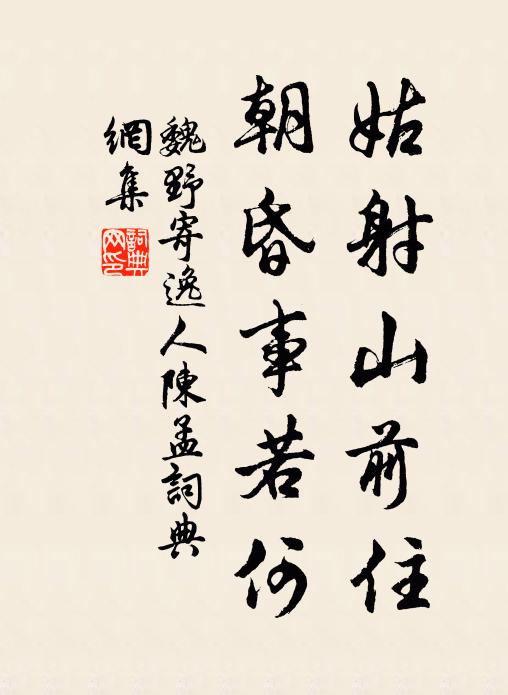 姑射山前住
朝昏事若何
魏野寄逸人陳孟詞典
網集
詞典
网印